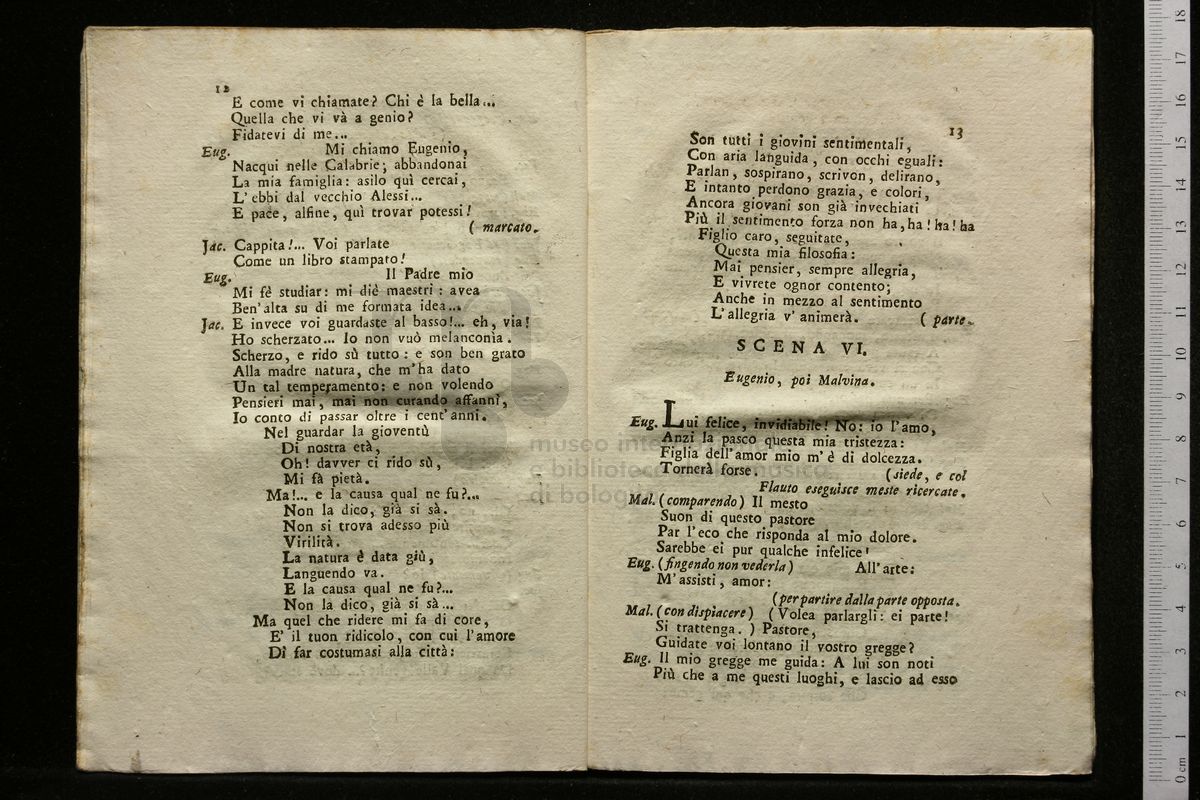 12
E come vi chiamate? Chi è la bella...
Quella che vi và a genio?
Fidatevi di me...
Eug. Mi chiamo Eugenio,
Nacqui nelle Calabrie; abbandonai
La mia famiglia: asilo quì cercai,
L' ebbi dal vecchio Alessi...
E pace, alfine, quì trovar potessi!
( marcato.
Jac. Cappita!... Voi parlate
Come un libro stampato!
Eug. Il Padre mio
Mi fè studiar: mi diè maestri: avea
Ben' alta su di me formata idea...
Jac. E invece voi guardaste al basso!... eh, via!
Ho scherzato... Io non vuò melanconia.
Scherzo, e rido sù tutto: e son ben grato
Alla madre natura, che m'ha dato
Un tal temperamento: e non volendo
Pensieri mai, mai non curando affanni,
Io conto di passar oltre i cent' anni.
Nel guardar la gioventù
Di nostra età,
Oh! davver ci rido sù,
Mi fà pietà.
Ma!... e la causa qual ne fu?...
Non la dico, già si sà.
Non si trova adesso più
Virilità.
La natura è data giù,
Languendo va.
E la causa qual ne fu?...
Non la dico, già si sà...
Ma quel che ridere mi fa di core,
E' il tuon ridicolo, con cui l'amore
Di far costumasi alla città:
13
Son tutti i giovini sentimentali,
Con aria languida, con occhi eguali:
Parlan, sospirano, scrivon, delirano,
E intanto perdono grazia, e colori,
Ancora giovani son già invecchiati
Più il sentimento forza non ha, ha! ha! ha
Figlio caro, seguitate,
Questa mia filosofia:
Mai pensier, sempre allegria,
E vivrete ognor contento;
Anche in mezzo al sentimento
L'allegria v' animerà. ( parte.
SCENA VI.
Eugenio, poi Malvina.
Eug. Lui felice, invidiabile! No: io l'amo,
Anzi la pasco questa mia tristezza:
Figlia dell'amor mio m' è di dolcezza.
Tornerà forse. (siede, e col
Flauto eseguisce meste ricercate.
Mal. (comparendo) Il mesto
Suon di questo pastore
Par l'eco che risponda al mio dolore.
Sarebbe ei pur qualche infelice!
Eug. (fingendo non vederla) All' arte:
M'assisti, amor:
(per partire dalla parte opposta.
Mal. (con dispiacere) (Volea parlargli: ei parte!
Si trattenga. ) Pastore,
Guidate voi lontano il vostro gregge?
Eug. Il mio gregge me guida: A lui son noti
Più che a me questi luoghi, e lascio ad esso
museo inte
e biblioteca della musica
di bologna
0 cm 1 2 3 4 5 6 7 8 9 10 11 12 13 14 15 16 17 18